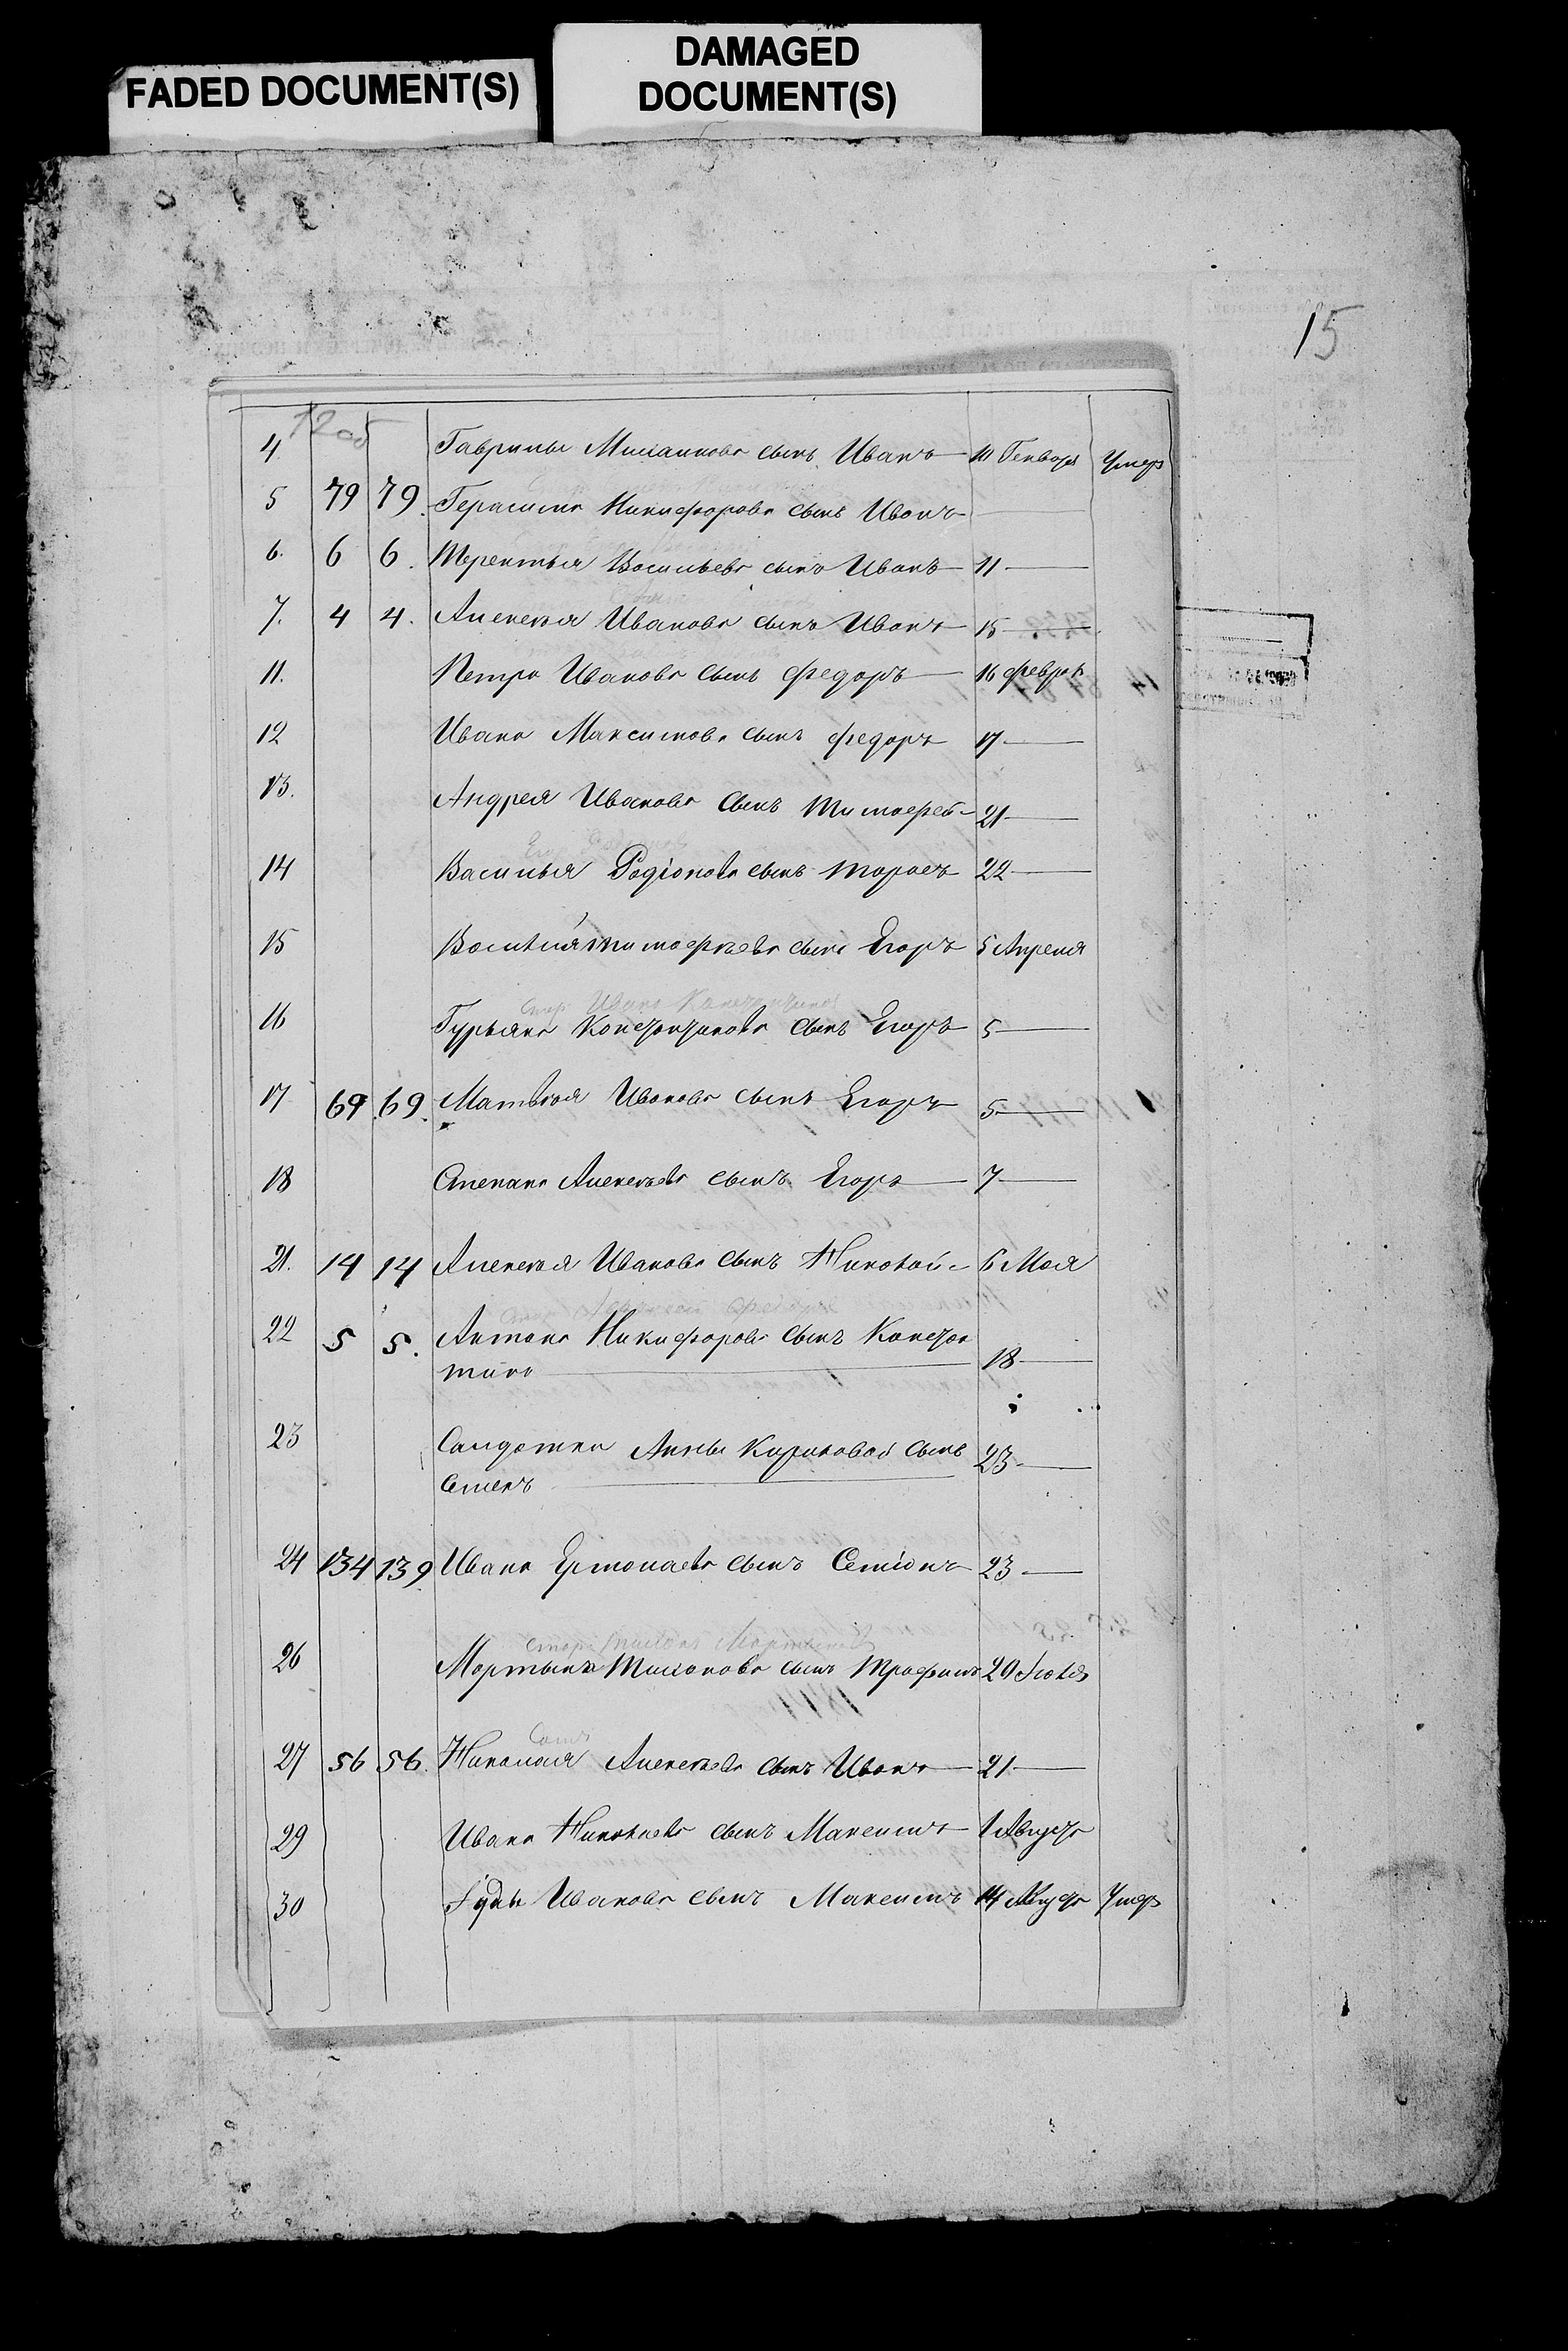 FADED DOCUMENT(S)
DAMAGED
DOCUMENT(S)
15
12 об
4 Гаврилы Михаилова сынъ Иванъ 10 Генворя Умеръ
5 79 79. Герасима Никифорова сынъ Иванъ
6. 6 6. Терентья Васильева сынъ Иванъ 11
7. 4 4. Алексея Иванова сынъ Иванъ 15
11. Петра Иванова сынъ Федоръ 16 Февраля
12 Ивана Максимова сынъ Федоръ 17
13. Андрея Иванова сынъ Тимофей 21
14 Василья Родіонова сынъ Тарасъ 22
15 Василья Тимофеева сынъ Егоръ 5 Апреля
16 Гурьяна Констонтинова сынъ Егоръ 5
17 69 69. Матвея Иванова сынъ Егоръ 5
18 Степана Алексеева сынъ Егоръ 7
21. 14 14 Алексея Иванова сынъ Николай 6 Мая
22 5 5. Антона Никифорова сынъ Констон
тинъ 18
23 Салдатки Анны Кириловой сынъ 23
Семенъ
24 134 139 Ивана Ермолаева сынъ Семіонъ 23
26 Мартына сынъ Трофимъ 20 Іюля
27 56 56. Николая Алексеева сынъ Иванъ 21
29 Ивана Николаева сынъ Максимъ 1 Августа
30 Іуды Иванова сынъ Максимъ 14 Августа Умеръ